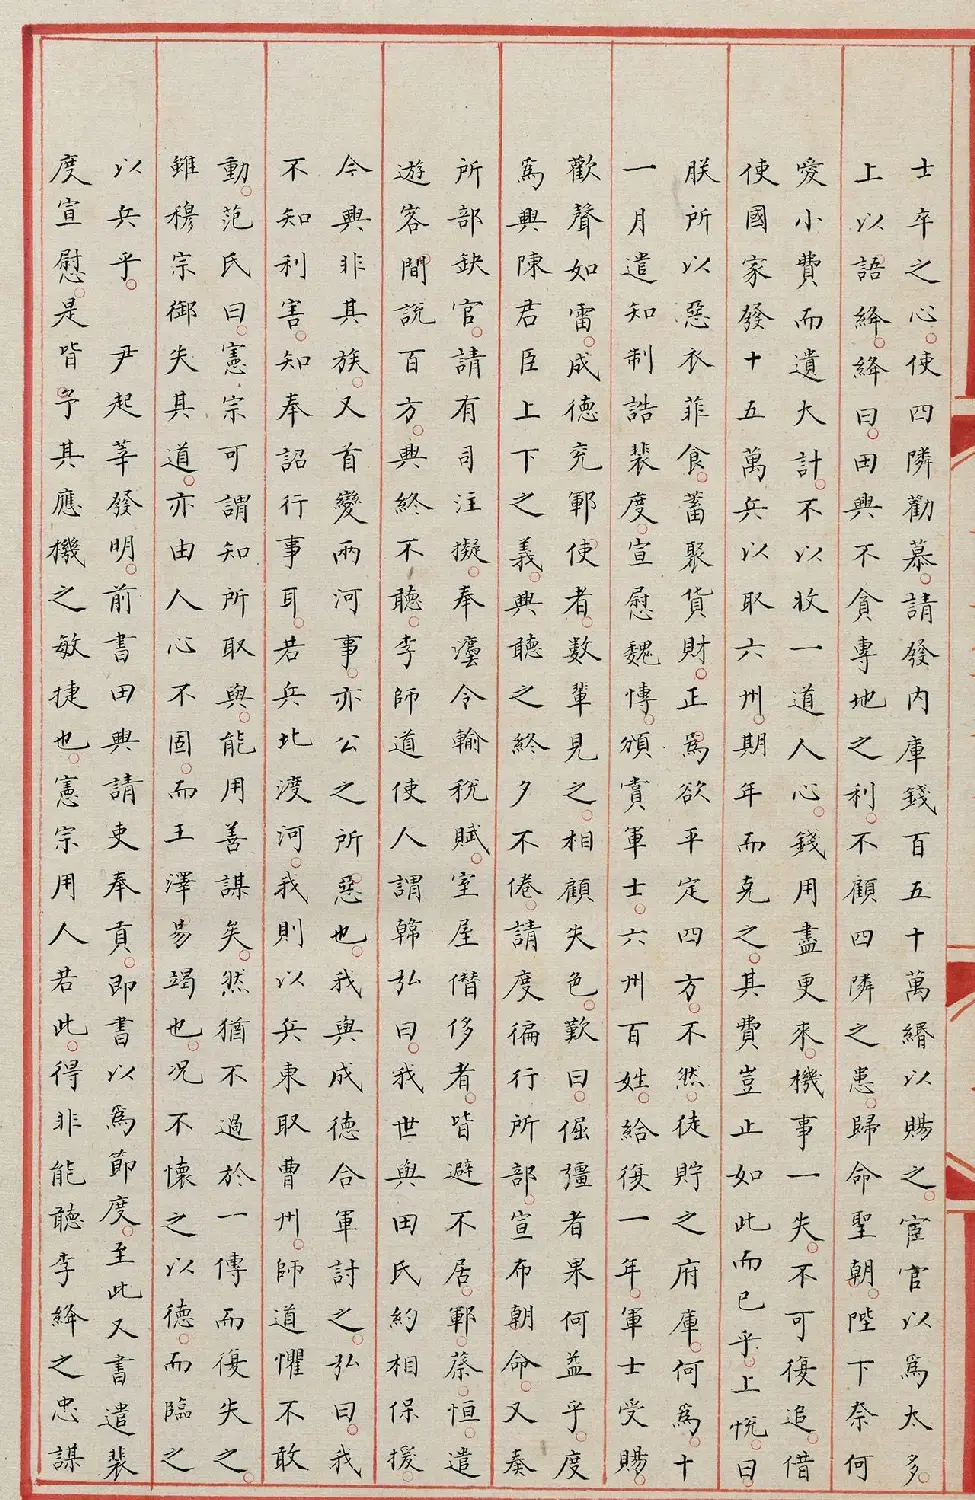 士卒之心。使四隣勸慕。請發内庫錢百五十萬緡以賜之。宦官以爲太多。
上以語絳。絳曰。田興不貪專地之利。不顧四隣之患。歸命聖朝。陛下奈何
愛小費而遺大計。不以收一道人心。錢用盡更來。機事一失。不可復追。借
使國家發十五萬兵以取六州。期年而克之。其費豈止如此而已乎。上悅。曰
朕所以惡衣菲食。蓄聚貨財。正爲欲平定四方。不然。徒貯之府庫。何爲。十
一月遣知制誥裴度。宣慰魏博。頒賞軍士。六州百姓。給復一年。軍士受賜。
歡聲如雷。成德兖鄆使者。數輩見之。相顧失色。歎曰。倔彊者果何益乎。度
爲興陳君臣上下之義。興聽之終夕不倦。請度徧行所部。宣布朝命。又奏
所部缺官。請有司注擬。奉灋令輸稅賦。室屋僣侈者。皆避不居。鄆蔡恒。遣
遊客間說百方。興終不聽。李師道使人謂韓弘曰。我世與田氏約相保援。
今興非其族。又首變兩河事。亦公之所惡也。我與成德合軍討之。弘曰。我
不知利害。知奉詔行事耳。若兵北渡河。我則以兵東取曹州。師道懼不敢
動。范氏曰。憲宗可謂知所取與。能用善謀矣。然猶不過於一傳而復失之。
雖穆宗御失其道。亦由人心不固。而王澤易竭也。况不懷之以德。而臨之
以兵乎。 尹起莘發明。前書田興請吏奉貢。即書以爲節度。至此又書遣裴
度宣慰。是皆予其應機之敏捷也。憲宗用人若此。得非能聽李絳之忠謀